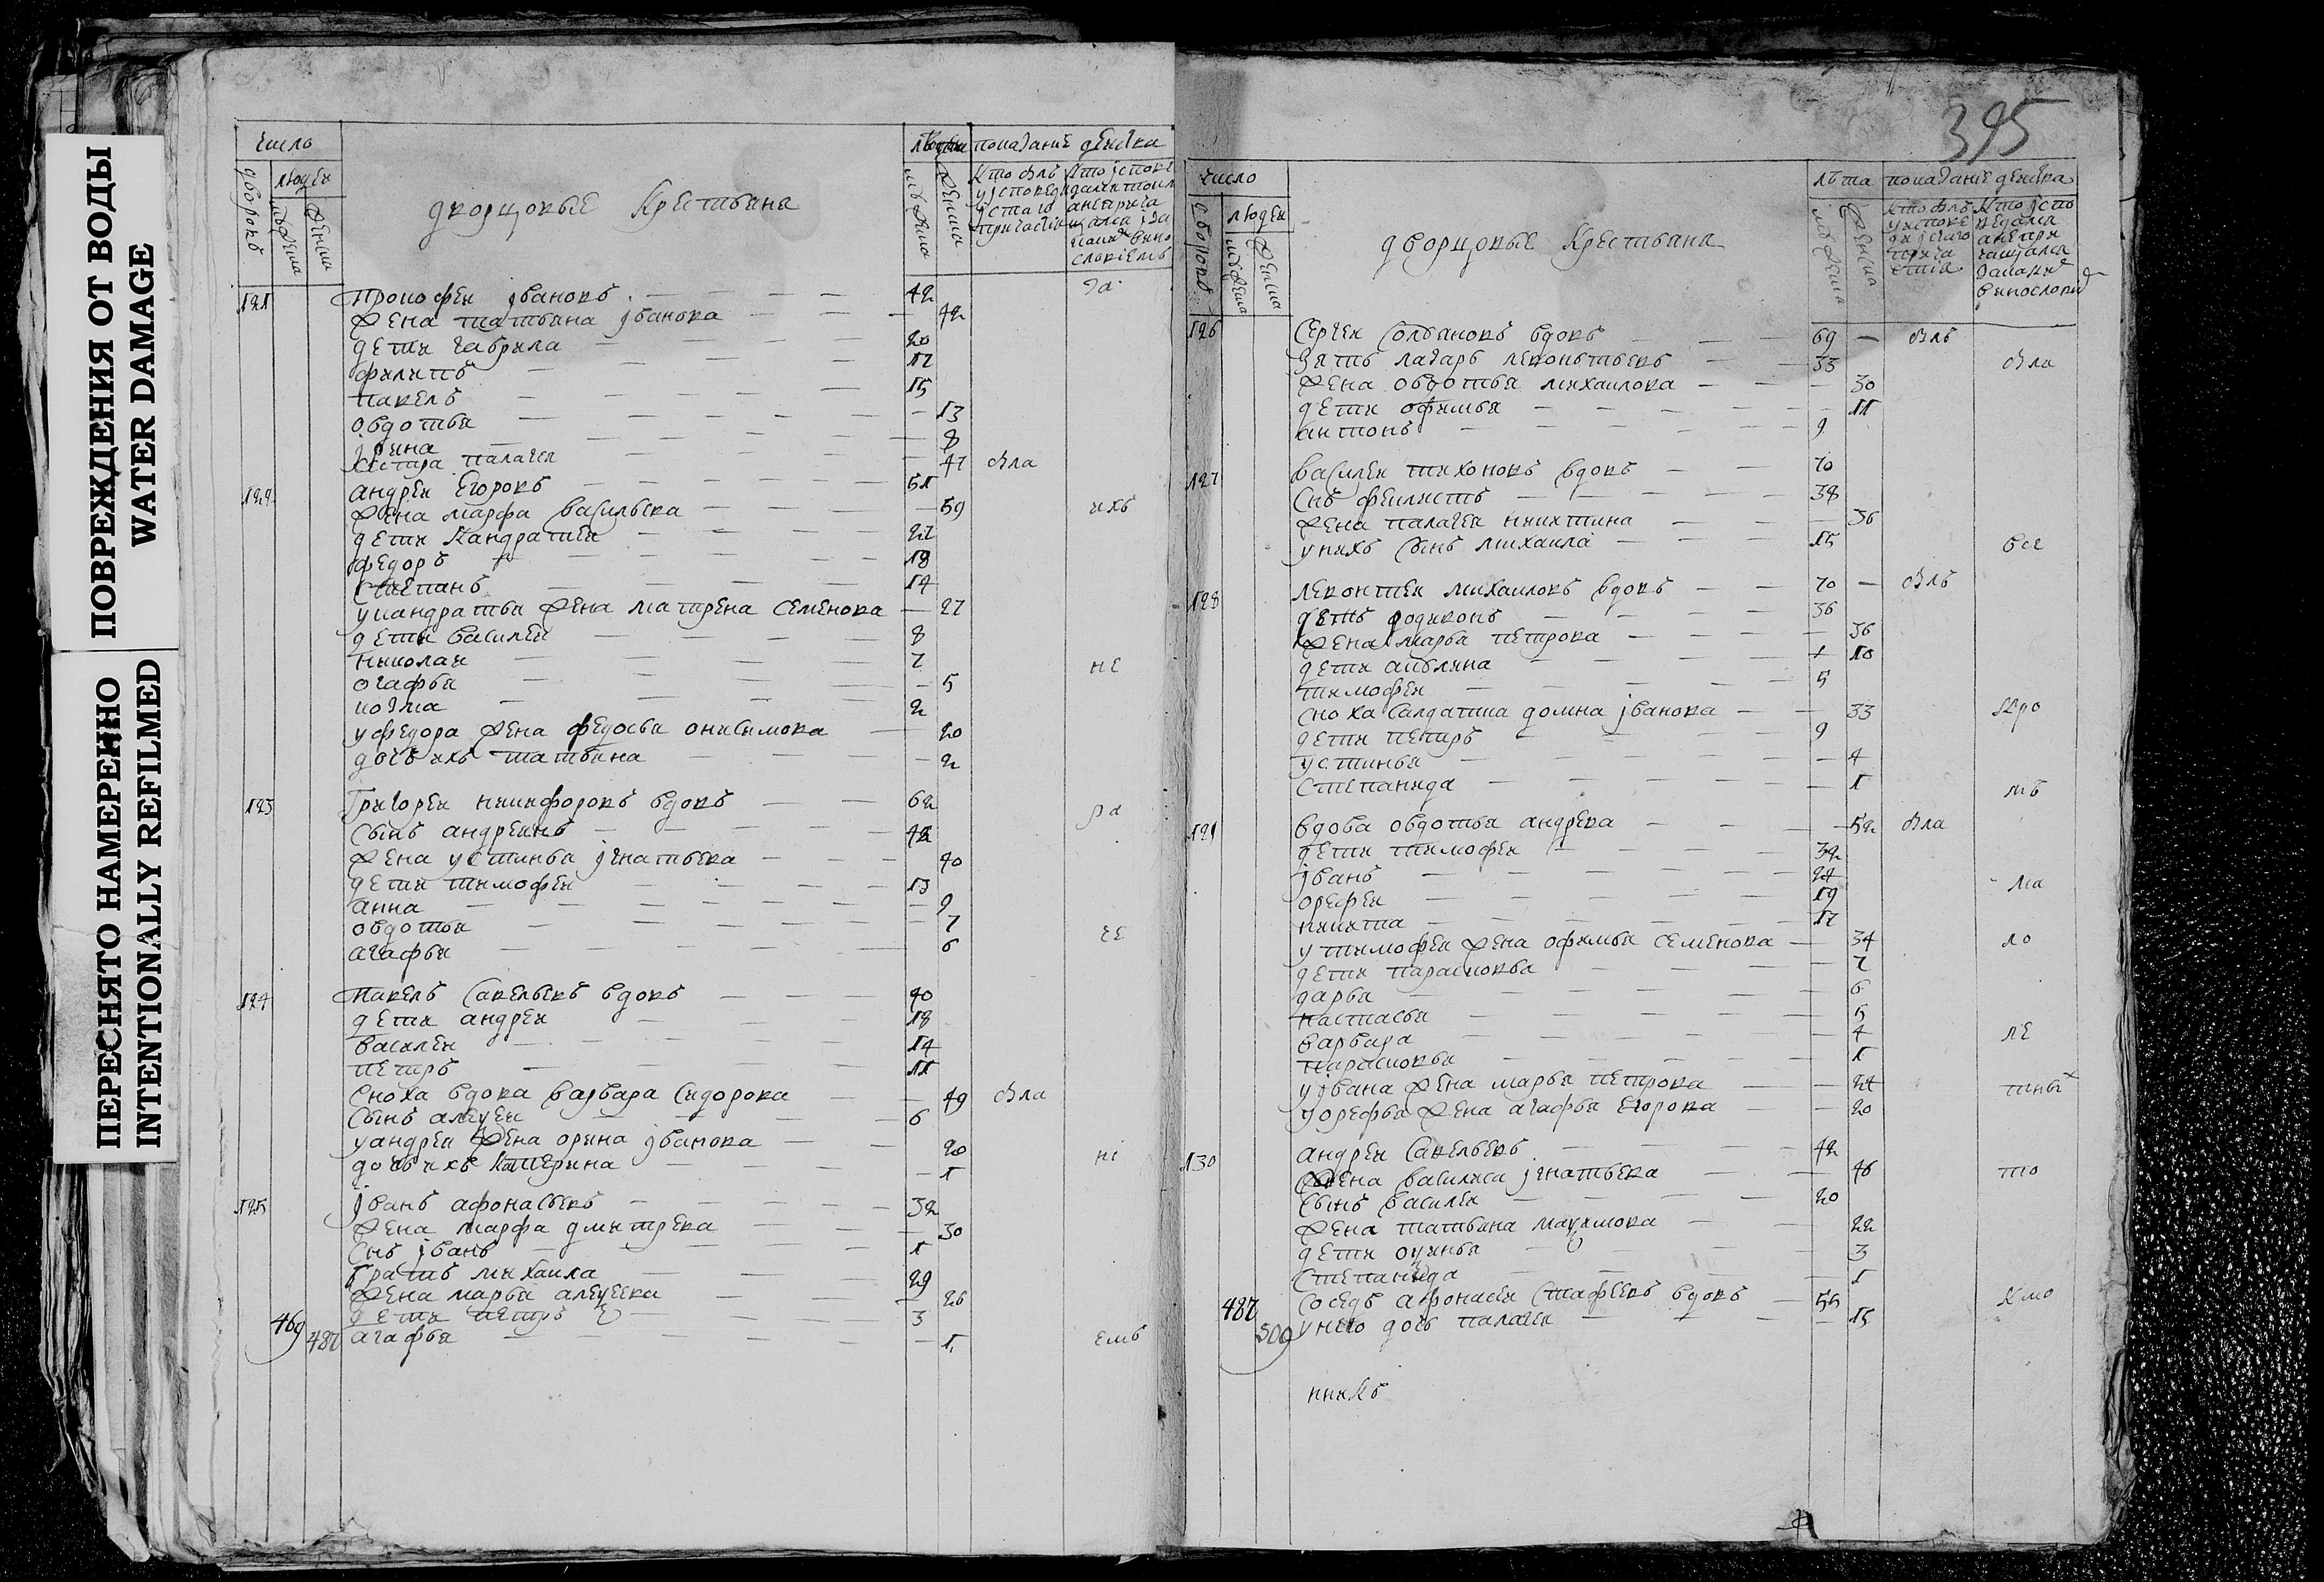 ПОВРЕЖДЕНИЯ ОТ ВОДЫ
WATER DAMAGE
ПЕРЕСНЯТО НАМЕРЕННО
INTENTIONALLY REFILMED
число
дворовъ
людеи
мужеска
женска
дворцовые Крестьяна
мужеска
женска
показание денства
121 прокофеи івановъ 42
жена татьяна іванова 42
дети гаврила 20
филипъ 17
павелъ 15
овдотья 13
ірина 8
сестра палагея 47 была
122 андреи егоровъ 51
жена марфа васильева 59 ихъ
дети кандратеи 27
федоръ 18
степанъ 14
укандратья жена матрена семенова 27
дети василеи 8
николаи 7 не
огафья 5
козма 2
уфедора жена федосья онисимова 20
дочь ихъ татьяна 2
123 Григореи никифоровъ вдовъ 62
сынъ андреянъ 42 ра
жена устинья ігнатьева 40
дети тимофеи 13
анна 9
овдотья 7
агафья 6
124 павелъ савельевъ вдовъ 40
дети андреи 18
василеи 14
петръ 11
сноха вдова варвара сидорова 49 была
сынъ алеѯеи 6
уандрея жена орина іванова 20
дочь ихъ катерина 1
125 іванъ афонасьевъ 32
жена марфа дмитрева 30
снъ іванъ 1
братъ михаила 29
жена марья алеѯеева 26
дети петръ 3
469 487 агафья 1 емъ
395
число
дворовъ
людеи
мужеска
женска
дворцовые Крестьяна
лѣта
мужеска
женска
показание денства
126 сергеи солдановъ вдовъ 69 былъ
зять лазарь леонътьевъ 33 была
жена овдотья михаилова 30
дети офимья 11
антонъ 9
127 василеи тихоновъ вдовъ 70
снъ феилистъ 38
жена палагея никитина 36
унихъ сынъ михаила 15 все
128 леонтеи михаиловъ вдовъ 70 былъ
дети родионъ 36
жена марья петрова 36
дети акулина 10
тимофеи 5
сноха салдатка домна іванова 33
дети петръ 9
устинья 4
степанида 1
129 вдова овдотья андреева 52 была
дети тимофеи 32
іванъ 24
орефеи 19
никита 17
утимофея жена офимья семенова 34 ло
дети парасковья 7
дарья 6
настасья 5
варвара 4 ле
парасковья 1
уівана жена марья петрова 24
уорефья жена агафья егорова 20
130 андреи савельевъ 42
жена василиса ігнатьева 46 то
сынъ василеи 20
жена татьяна маѯимова 22
дети оѯинья 3
степанида 1
487 соседъ афонасеи стафеевъ вдовъ 55
509 унего дочь палагея 15